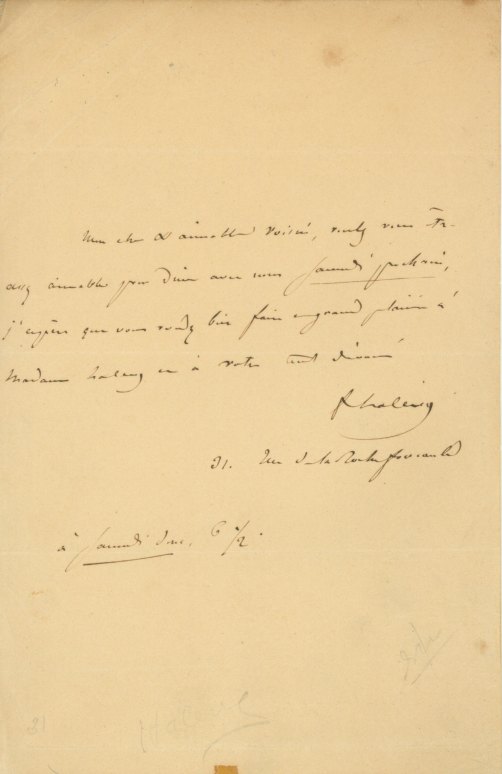 Mon cher & aimable voisin, voulez vous être
assez aimable pour diner avec nous samedi prochain,
j'espère que vous voudrez bien faire ce grand plaisir à
Madame halevy et à votre tout dévoué
F halevy
31. Rue de la Rochefoucauld
à samedi donc, 6 1/2.
31